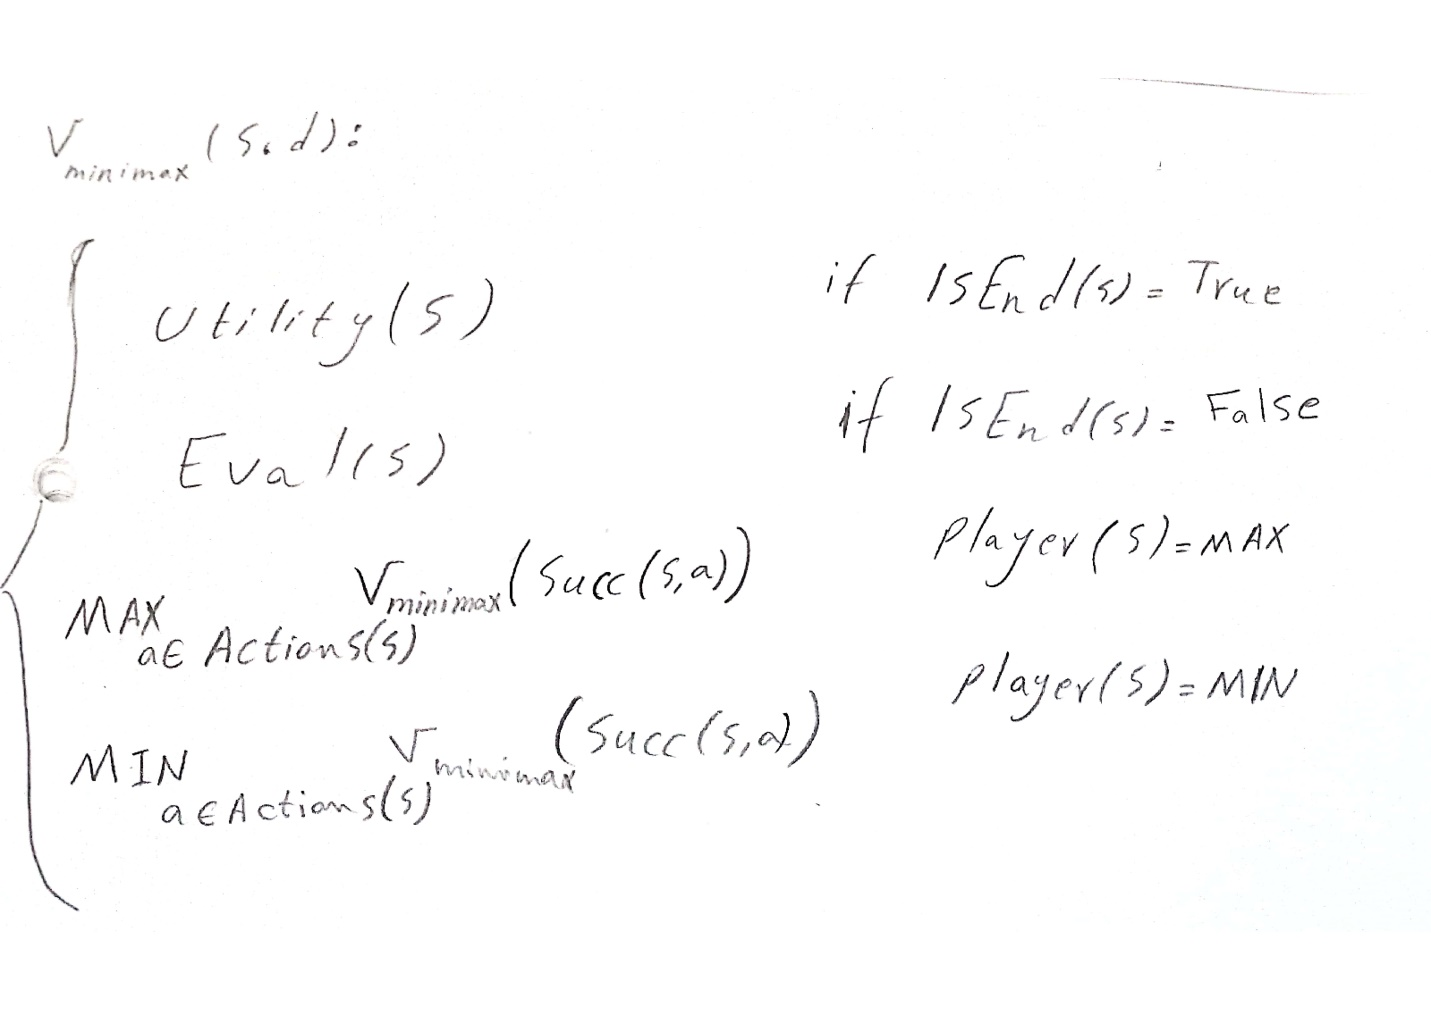 V minimax (s,d):
Utility(s) if IsEnd(s) = True
Eval(s) if IsEnd(s) = False
MAX a∈ Actions(s) V minimax (Succ(s,a)) Player(s) = MAX
MIN a∈Actions(s) V minimax (Succ(s,a)) player(s) = MIN